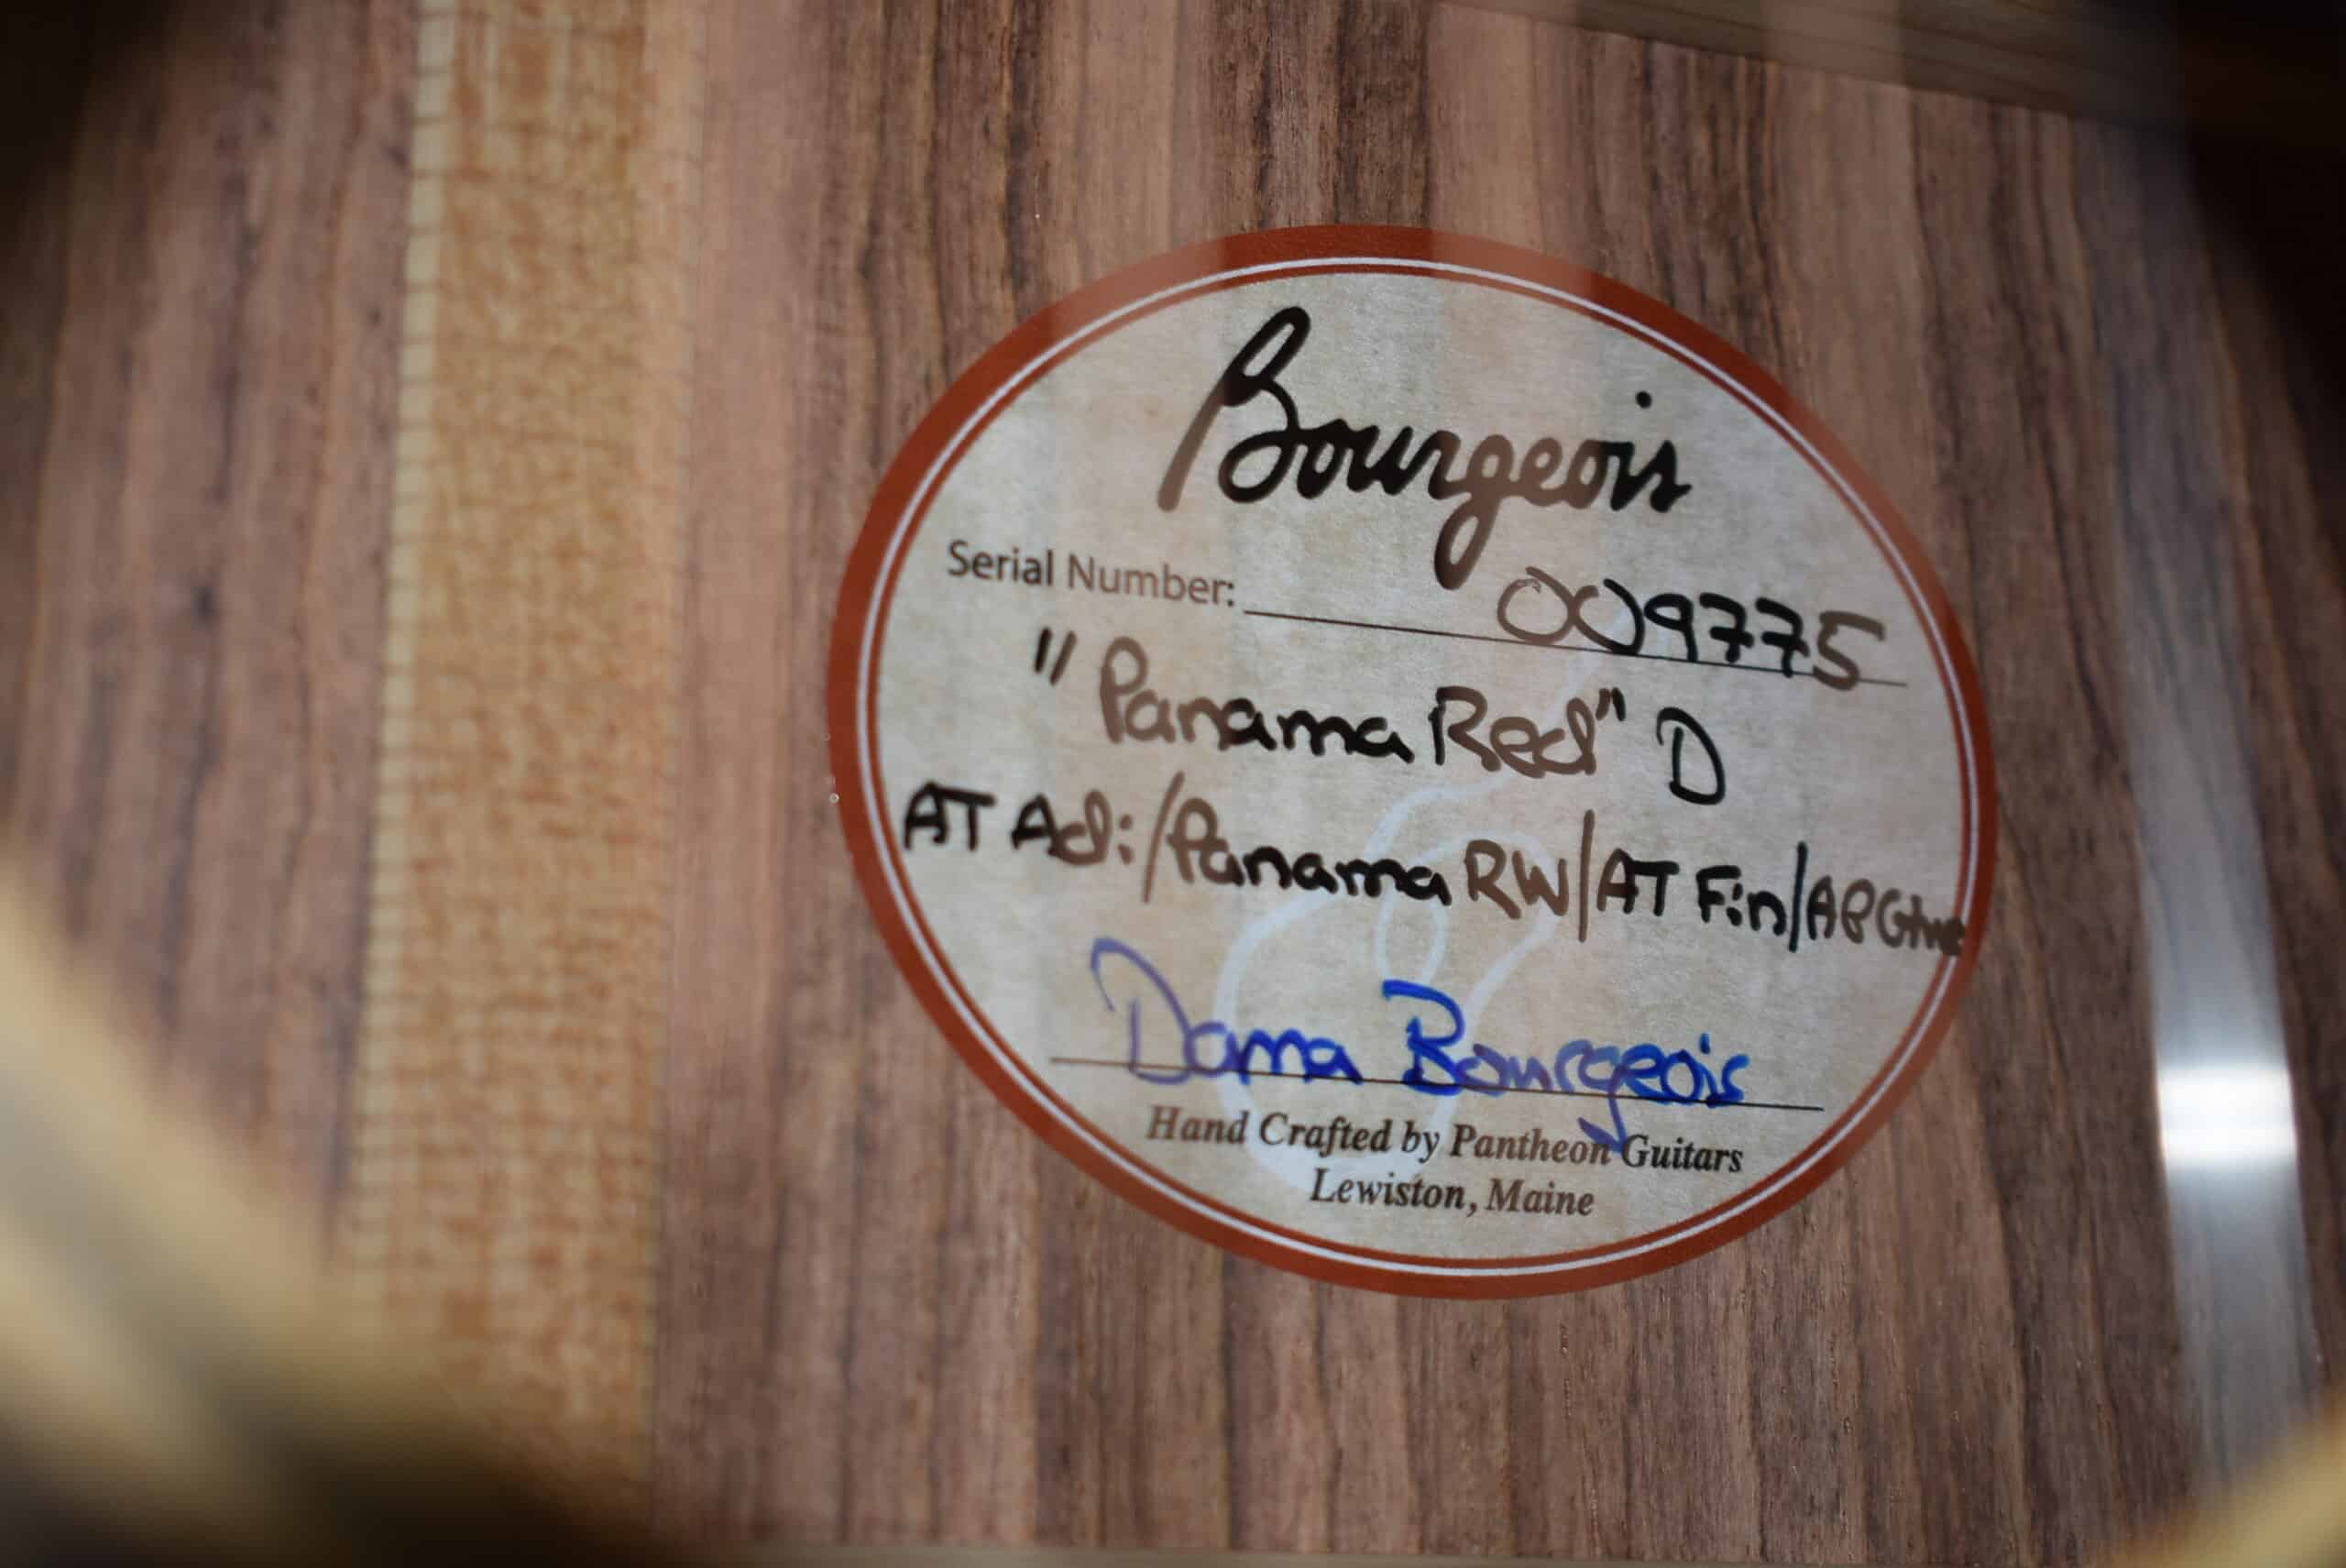 Bourgeois
Serial Number: 009775
"Panama Red" D
AT Adi/Panama RW/AT Fin/
Dana Bourgeois
Hand Crafted by Pantheon Guitars
Lewiston, Maine